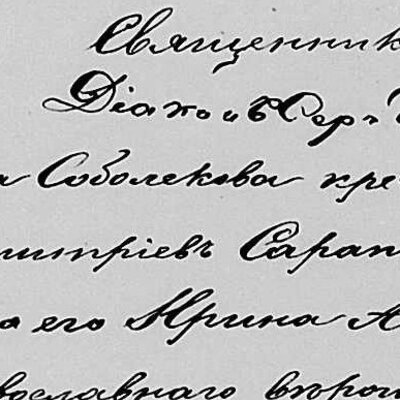 Священник
Діаконъ Сер
а Соболекова кре
митріевъ Сарап
а его Ирина А
вославнаго втрои